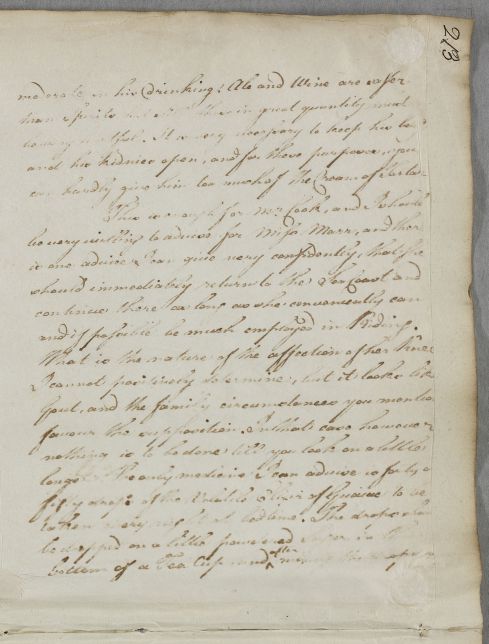 213
moderate in his drinking; Ale and Wine are safer
than Spirits but even these in great quantity must
be very hurtful. It is very necessary to keep his belly
and his kidnies open, and for these purposes, you
can hardly give him too much of the Cream of Tartar
This is enough for Mr Cook, and I should
be very willing to advise for Miss Marr, and there
is one advice I can give very confidently, that she
should immediately return to the Sea Coast and
continue there as long as she conveniently can
and if possible be much employed in Riding.
What is the nature of the affection of her Knee
I cannot positively determine, but it looks like
Gout, and the family circumstances you mention
favour the supposition. In that case however
nothing is to be done till you look on a little
longer. The only medicine I can advise is forty or
fifty drops of the Volatile Elixir of Guaiac to be
taken every night at bedtime. The drops should
be dropped on a little powdered sugar in the
bottom of a Tea Cup and after